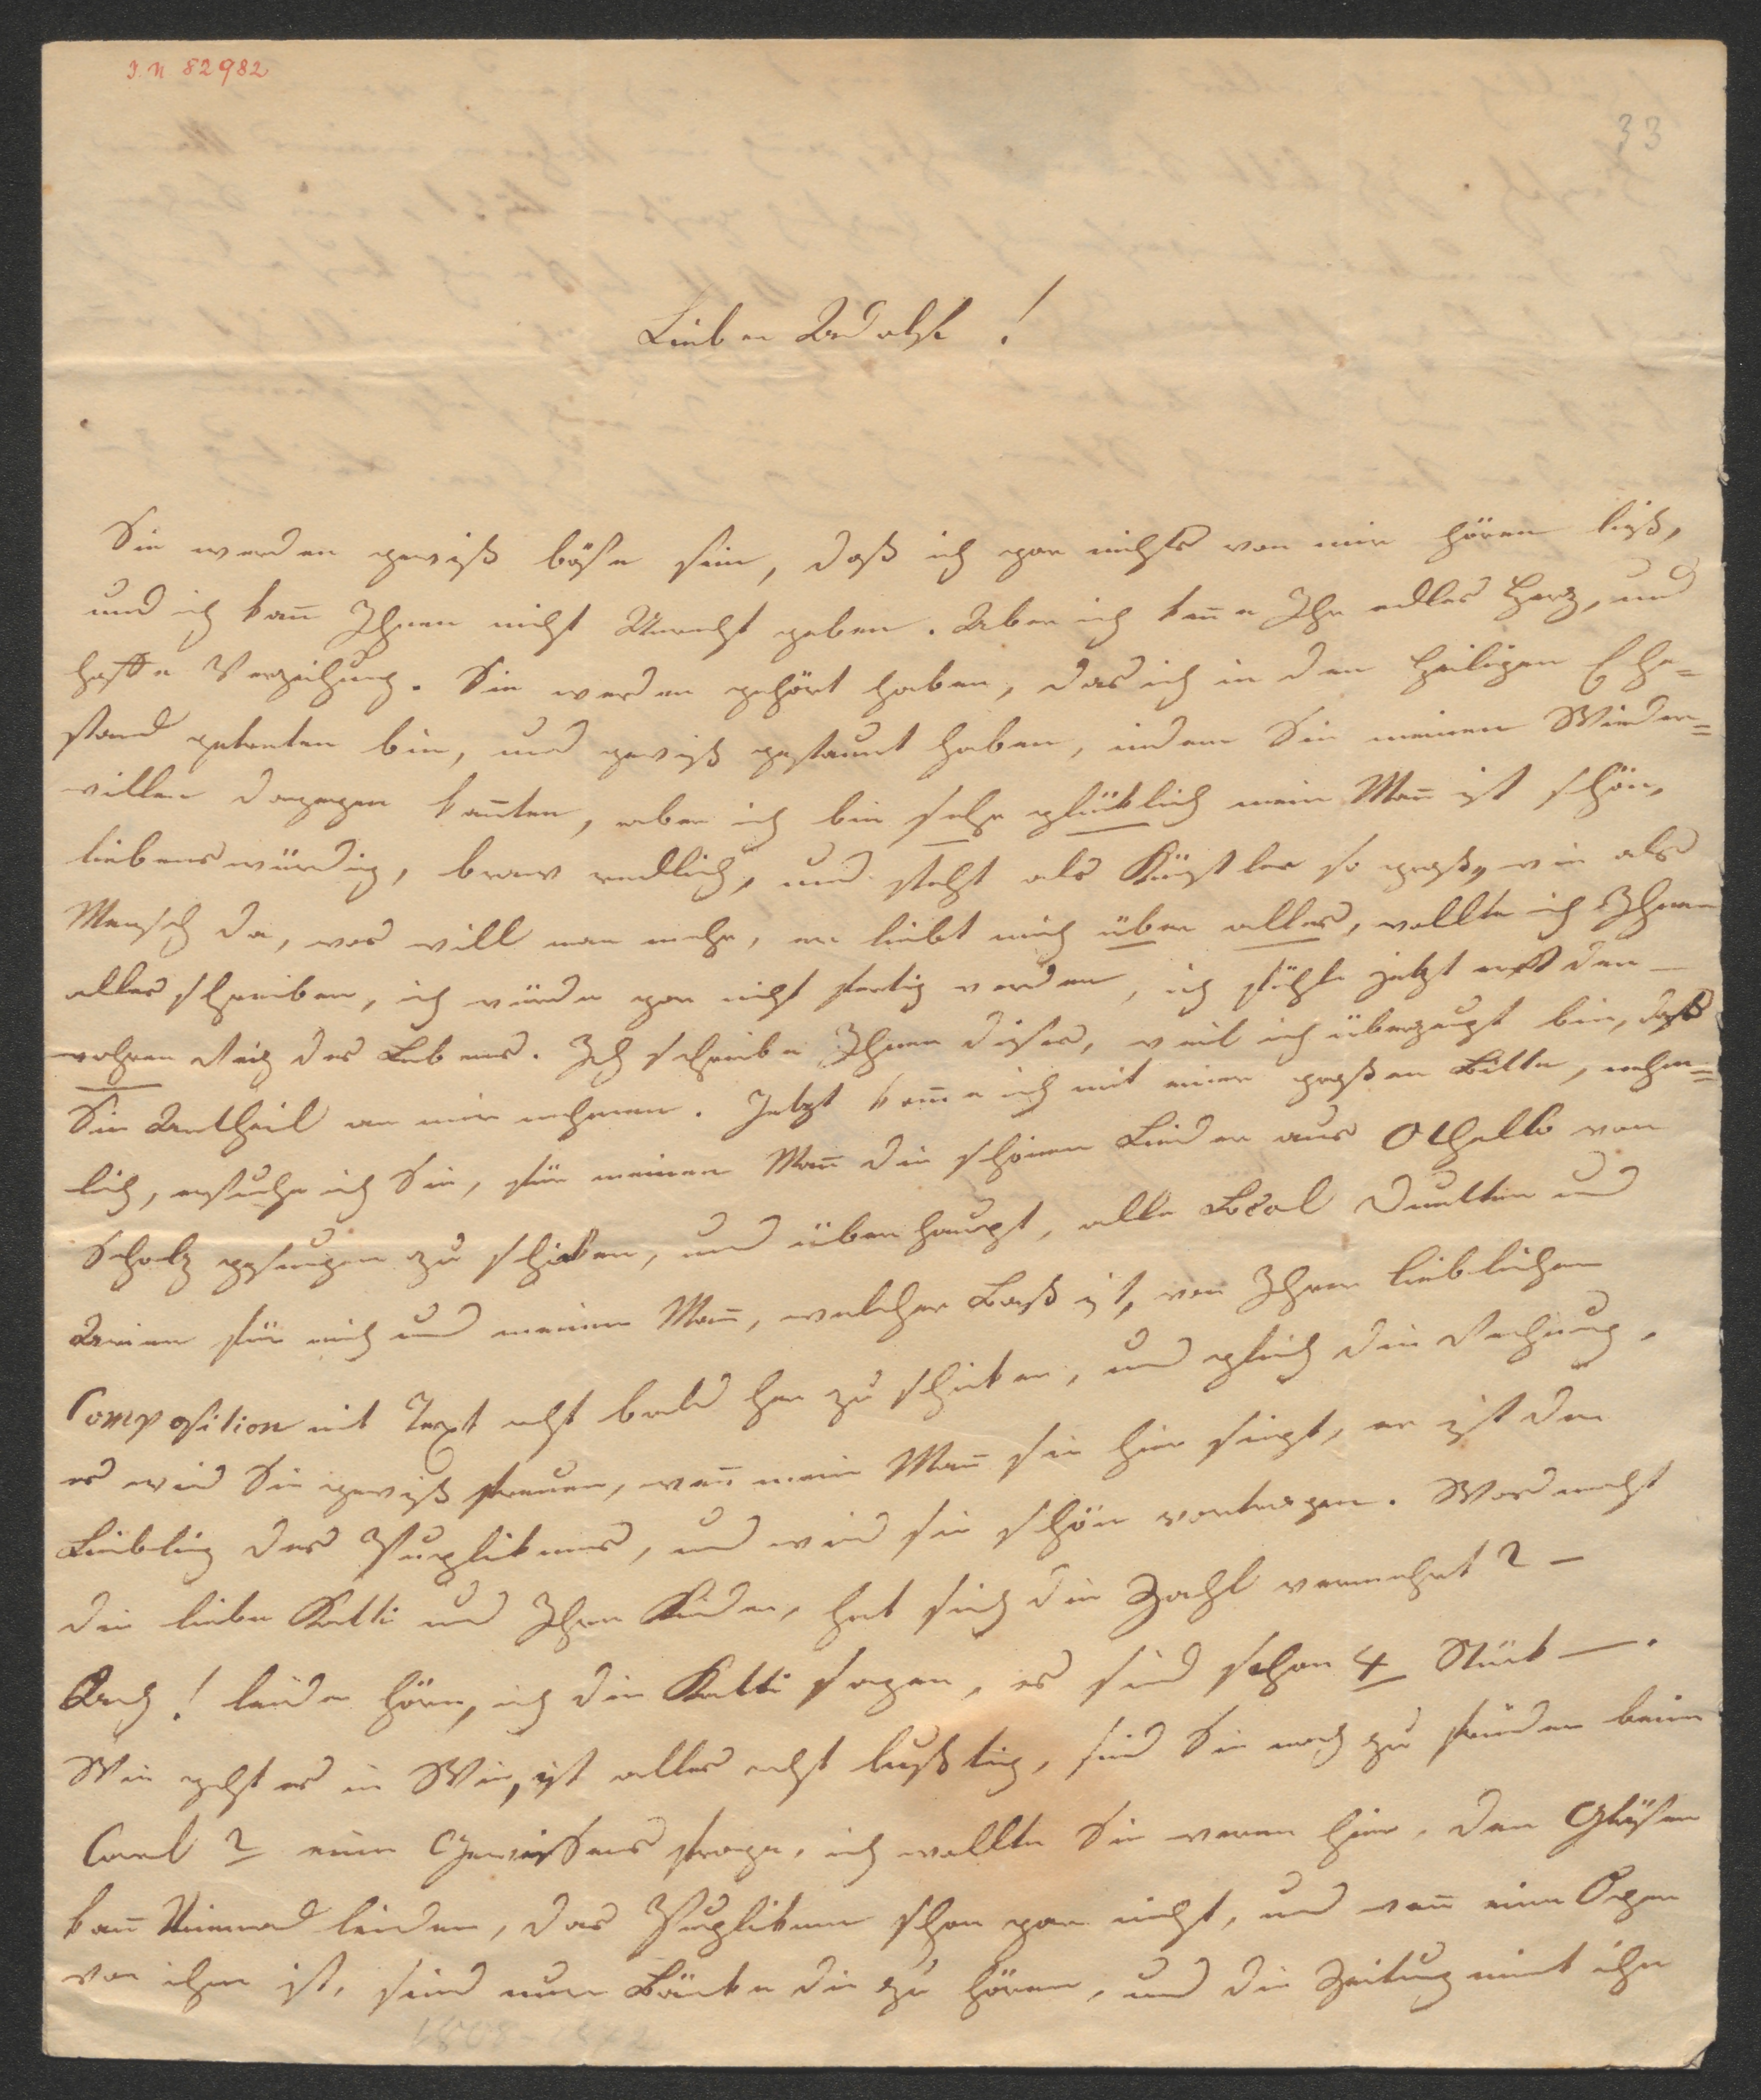 I. N 82982
33
Lieber Adolf !
Sie werden gewiß böse sein, daß ich gar nichts von mir hören ließ,
und ich kan̅ Ihnen nicht Unrecht geben. Aber ich ken̅e Ihr edles Herz, und
hoffe Verzeihung. Sie werden gehört haben, das ich in den heiligen Ehe=
stand getretten bin, und gewiß gestaunt haben, indem Sie meinen Wieder=
willen dagegen kan̅ten, aber ich bin sehr glüklich mein Man̅ ist schön,
liebenswürdig, brav redlich, und steht als Künstler so groß, wie als
Mensch da, was will man mehr, er liebt mich über alles, wollte ich Ihnen
alles schreiben, ich würde gar nicht fertig werden, ich fühle jetzt erst den
wahren Reiz des Lebens. Ich schreibe Ihnen dises, weil ich überzeugt bin, daß
Sie Antheil an mir nehmen. Jetzt kom̅e ich mit einer großen Bitte, nehm=
lich, ersuche ich Sie, für meinen Man̅ die schönen Lieder aus Othello von
Scholz gesungen zu schicken, und überhaupt, alle Local Duetten und
Arien für mich und meinen Man̅, welcher Baß ist, von Ihrer lieblichen
Composition mit Text recht bald her zu schicken, und gleich die Rechnung,
es wird Sie gewiß freuen, wen̅ mein Man̅ sie hier singt, er ist der
Liebling des Puplikums, und wird sie schön vortragen. Was macht
die liebe Katti und Ihre Kinder, hat sich die Zahl vermehrt ? –
Ach ! leider höre, ich die Katti sagen, es sind schon 4 Stück —.
Wie geht es in Wien, ist alles recht lusstig, sind Sie noch zu frieden beim
Carl ? eine Gewissens frage, ich wollte Sie waren hier, den Gläser
kan̅ Niemand leiden, das Puplikum schon gar nicht, und wen̅ eine Oper
von ihm ist, sind nur Bänke die zu hören, und die Zeitung nimt ihn
1808-1872